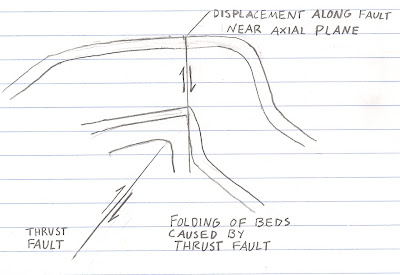 DISPLACEMENT ALONG FAULT
NEAR AXIAL PLANE
THRUST
FAULT
FOLDING OF BEDS
CAUSED BY
THRUST FAULT